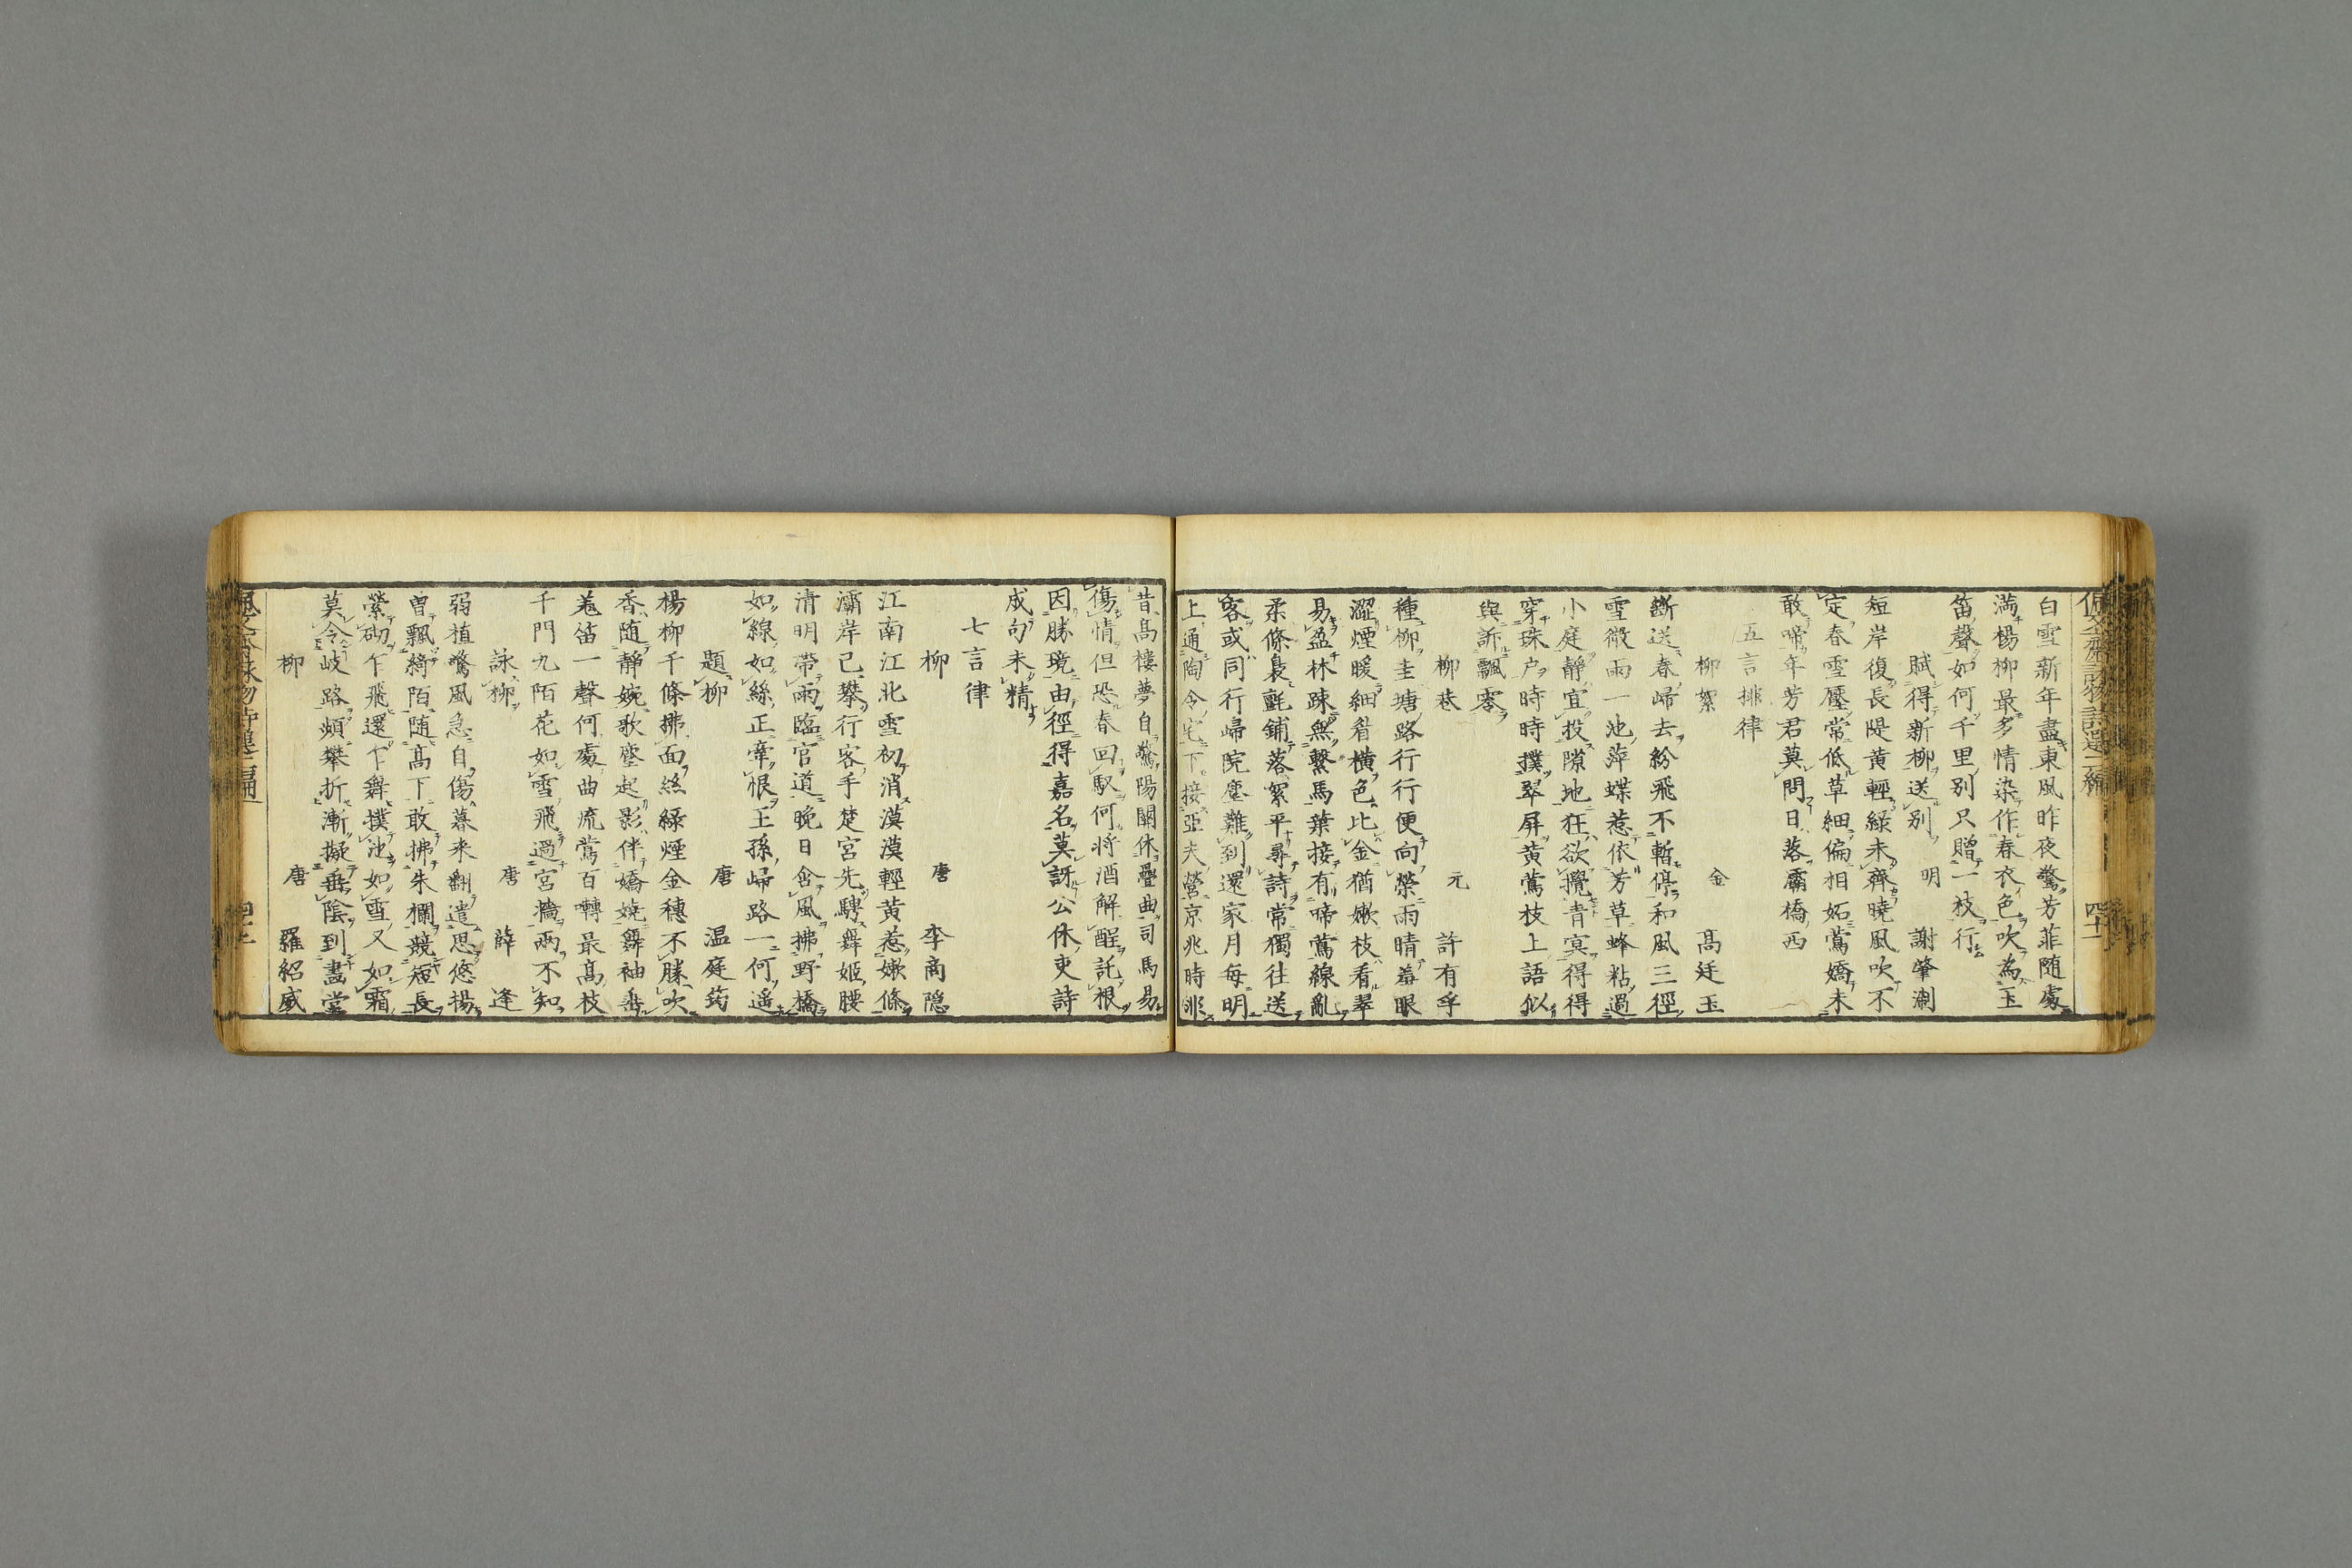 白雪新年盡東風昨夜驚芳菲随處
満楊柳最多情染作春衣色吹為玉
笛聲如何千里別只贈一枝行
賦得新柳送別 明 謝肇淛
短岸復長隄黄輕緑未齊曉風吹不
定春雪壓常低草細偏相妬鶯嬌未
敢啼年芳君莫問日落灞橋西
五言排律
柳絮 金 高廷玉
斷送春歸去紛飛不暫停和風三徑
雪微雨一池萍蝶惹依芳草蜂粘過
小庭靜宜投隙地狂欲攪青冥得得
穿珠户時時撲翠屏黄鶯枝上語似
與訴飄零
柳巷 元 許有孚
種柳圭塘路行行便向榮雨晴羞眼
澀煙暖細眉横色比金猶嫩枝看翠
易盈林踈無繋馬葉接有啼鶯線亂
柔條裊氈鋪落絮平尋詩常獨往送
客或同行歸院塵難到還家月毎明
上通陶令宅下接亞夫營京兆時非
昔高樓夢自驚陽關休疊曲司馬易
傷情但恐春回馭何将酒解酲託根
因勝境由徑得嘉名莫訝公休吏詩
成句未精
七言律
柳 唐 李商隠
江南江北雪初消漠漠輕黄惹嫩條
灞岸已攀行客手楚宮先騁舞姬腰
清明帯雨臨官道晩日含風拂野橋
如線如絲正牽恨王孫歸路一何遥
題柳 唐 温庭筠
楊柳千條拂面絲緑煙金穗不勝吹
香随靜婉歌塵起影伴嬌嬈舞袖垂
羌笛一聲何處曲流鶯百囀最高枝
千門九陌花如雪飛過宮牆兩不知
詠柳 唐 薛逢
弱植驚風急自傷暮来翻遣思悠揚
曽飄綺陌随高下敢拂朱欄競短長
縈砌乍飛還乍舞撲池如雪又如霜
莫令岐路頻攀折漸擬垂陰到畫堂
柳 唐 羅紹威